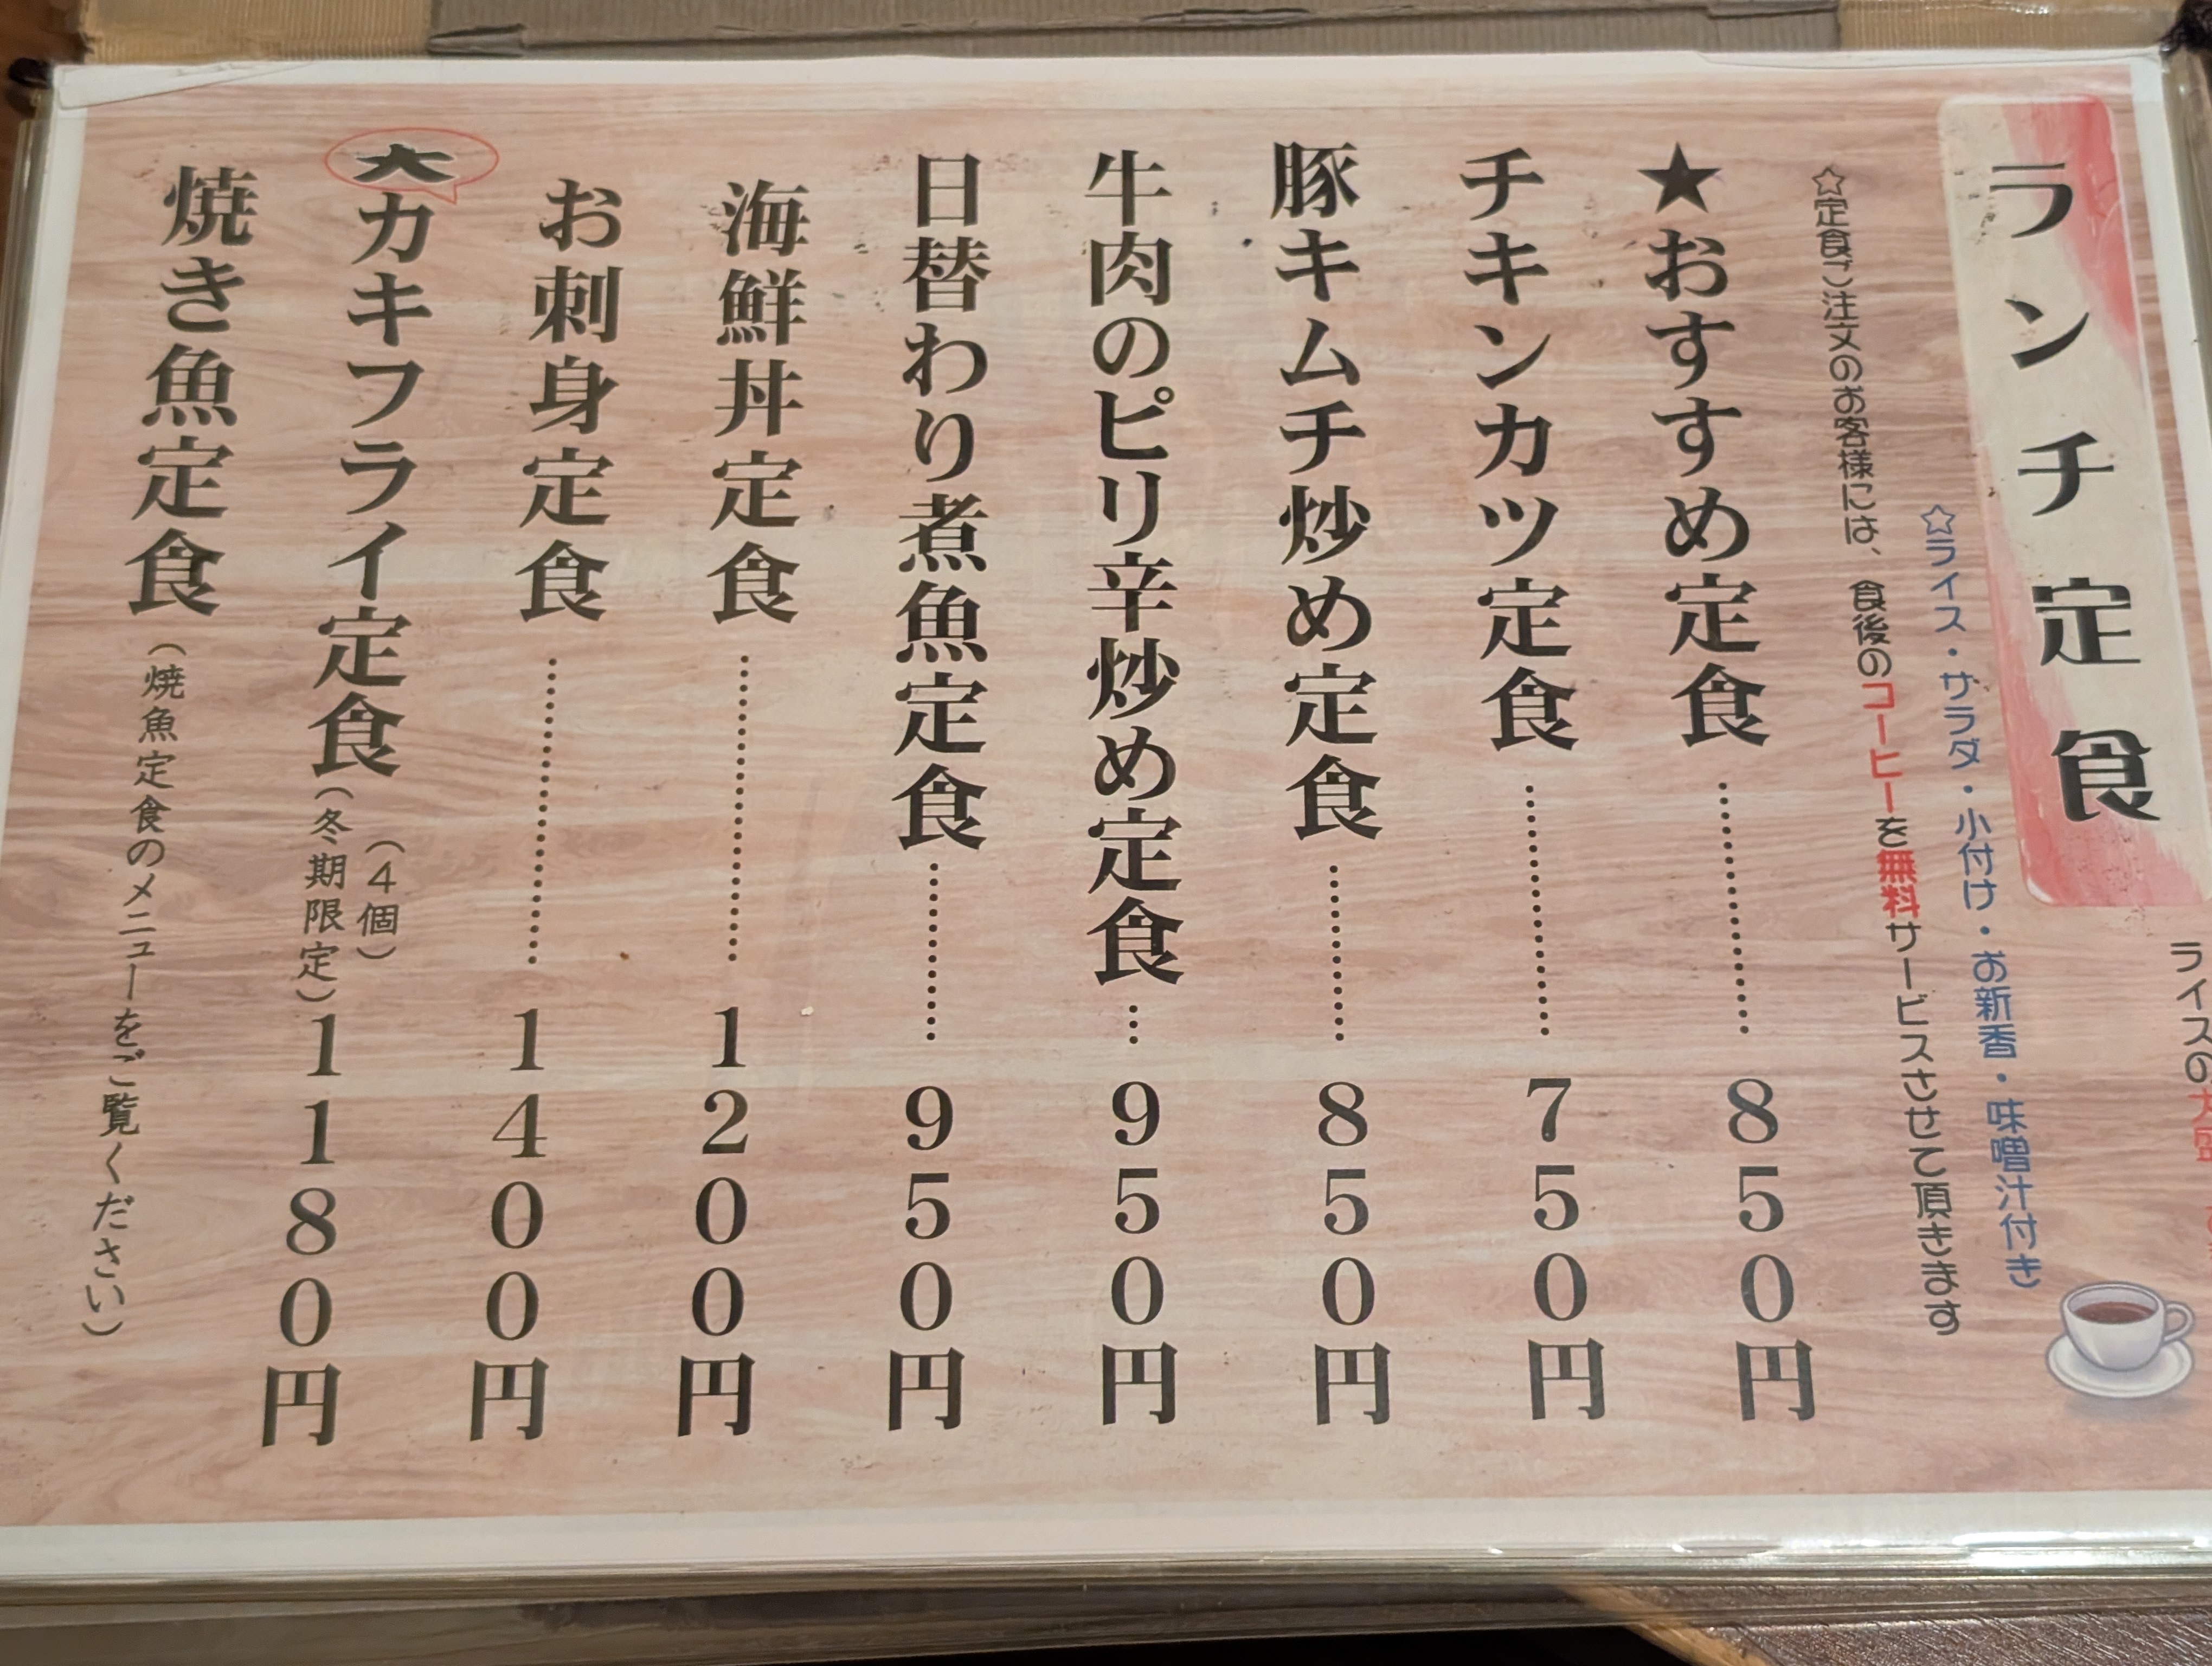 ライスの大盛
ランチ定食
☆ライス・サラダ・小付け・お新香・味噌汁付き
☆定食ご注文のお客様には、食後のコーヒーを無料サービスさせて頂きます
★おすすめ定食…………850円
チキンカツ定食…………750円
豚キムチ炒め定食………850円
牛肉のピリ辛炒め定食…950円
日替わり煮魚定食………950円
海鮮丼定食……………1200円
お刺身定食……………1400円
大カキフライ定食(4個)(冬期限定)1180円
焼き魚定食(焼魚定食のメニューをご覧ください)